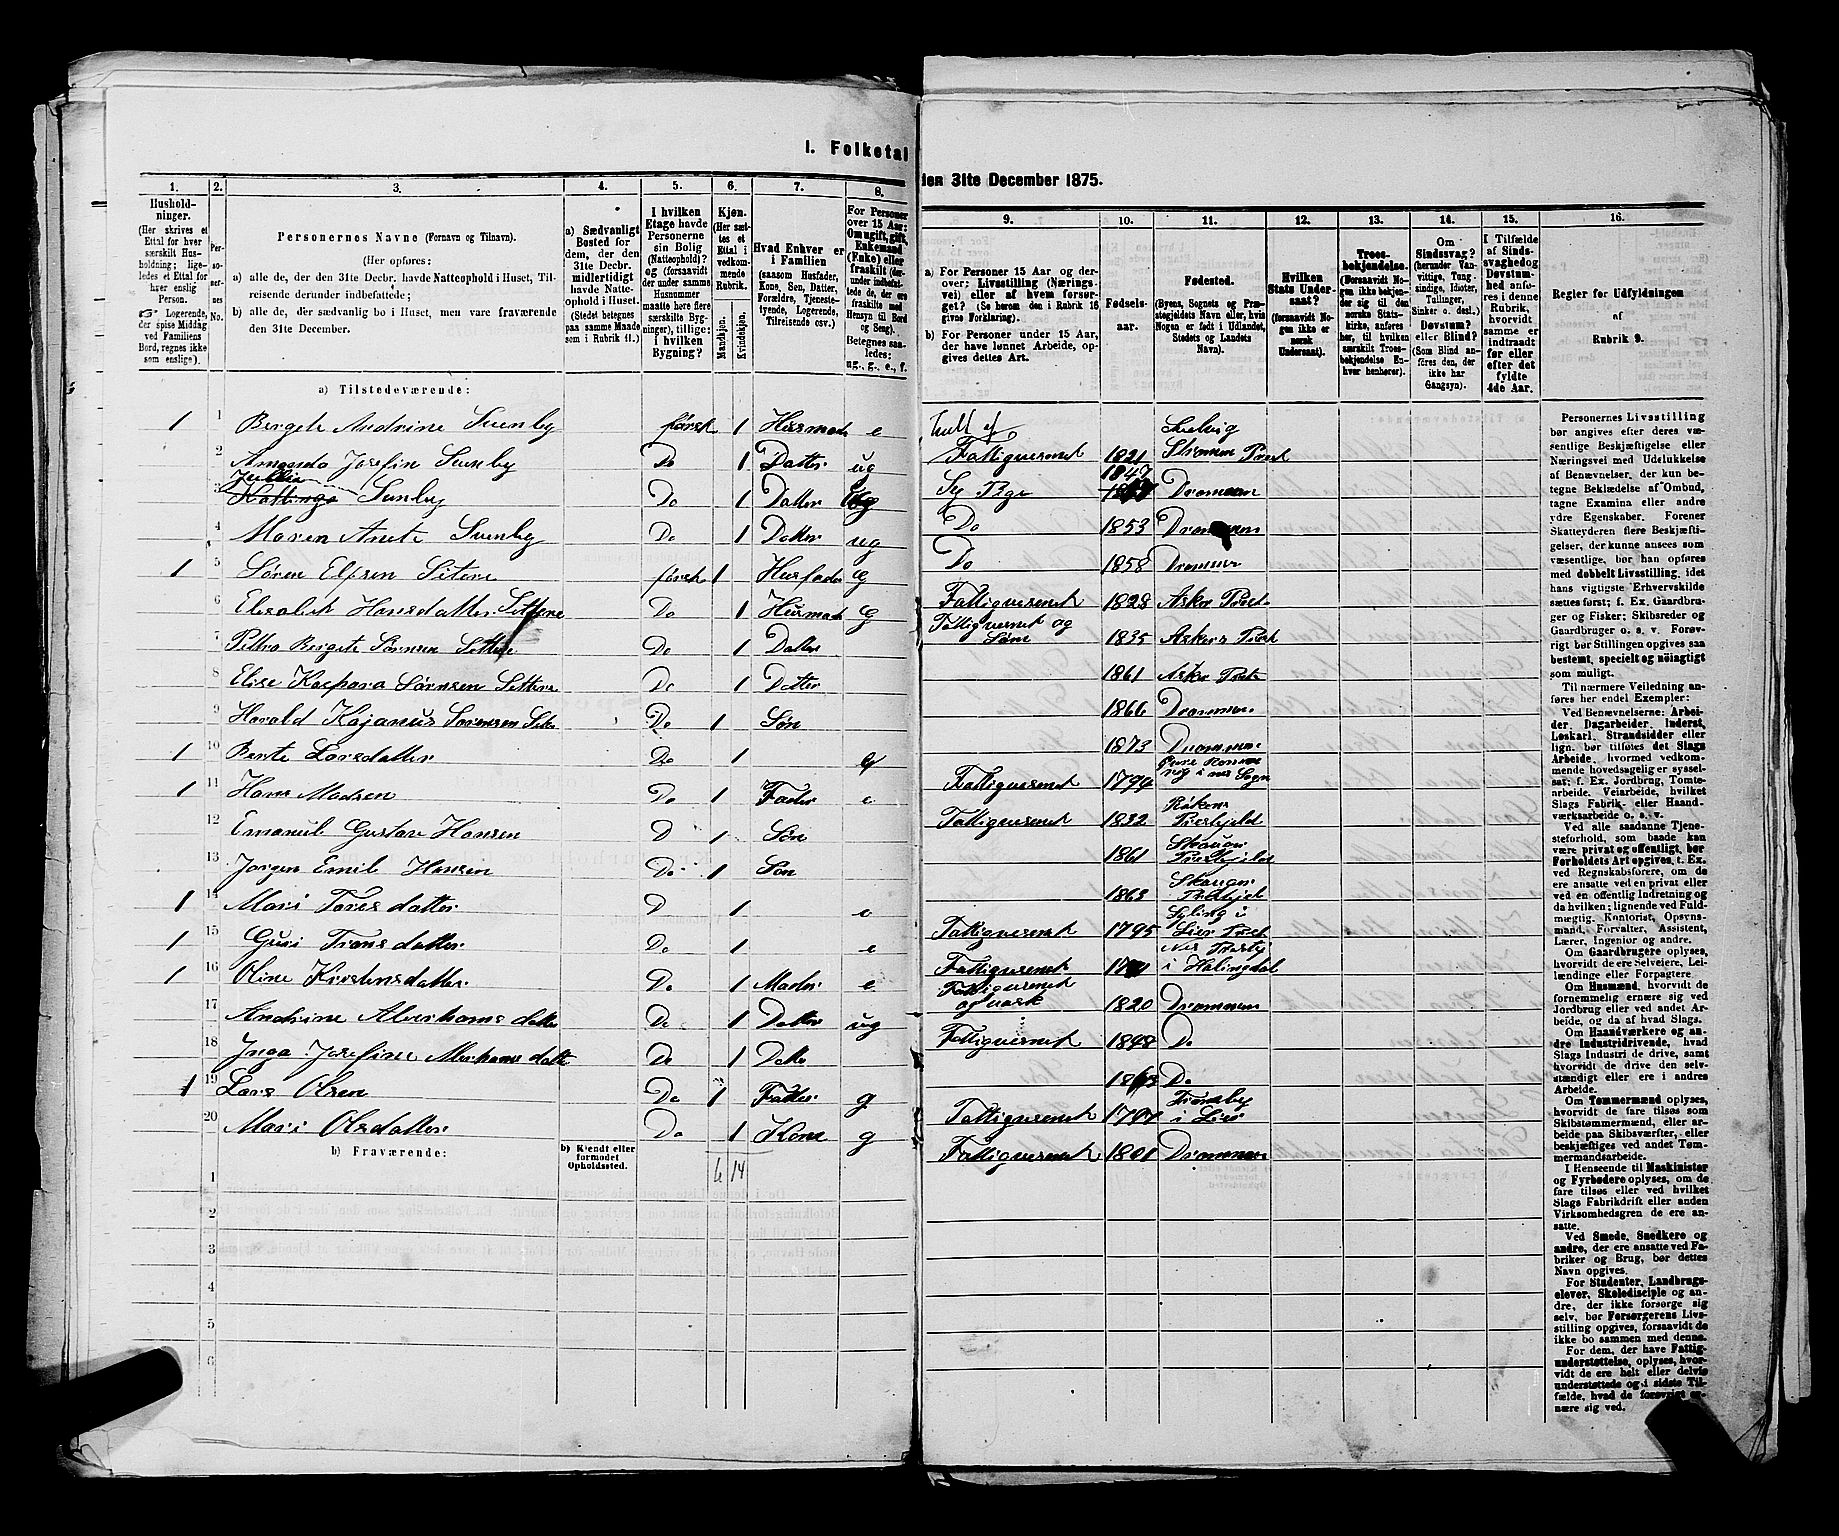 I. Folketal
den 31te December 1875.
1. 2. 3. 4. 5. 6. 7. 8.
Hushold-
ninger.
(Her skrives et
Ettal for hver
særskilt Hus-
holdning; lige-
ledes et Ettal for
hver enslig
Person.
Logerende,
der spise Middag
ved Familiens
Bord, regnes ikke
som enslige).
Per-
so-
ner-
nes
No.
Personernes Navne (Fornavn og Tilnavn).
(Her opføres:
a) alle de, der den 31te Decbr. havde Natteophold i Huset, Til-
reisende derunder indbefattede;
b) alle de, der sædvanlig bo i Huset, men vare fraværende
den 31te December.
a) Sædvanligt
Bosted for
dem, der den
31te Decbr.
midlertidigt
havde Natte-
ophold i Huset.
(Stedet betegnes
paa samme Maade
som i Rubrik 11.)
I hvilken
Etage havde
Personerne
sin Bolig
(Natteophold)?
og (forsaavidt
der under samme
Husnummer
maatte høre flere
særskilte Byg-
ninger), tillige:
i hvilken
Bygning?
Kjøn.
(Her sæt-
tes et
Ettal i
vedkom-
mende
Rubrik.
Mandkjøn.
Kvindekjøn.
Hvad Enhver er
i Familien
(saasom Husfader,
Kone, Søn, Datter,
Forældre, Tjeneste-
tyende, Logerende,
Tilreisende osv.)
For Personer
over 15 Aar:
Om ugift, gift,
Enkemand
(Enke) eller
fraskilt (der-
under indbefat-
tede de, der ere
fraskilte med
Hensyn til Bord
og Seng).
Betegnes saa-
ledes:
ug., g., e., f.
a) Tilstedeværende:
1 1 Bergete Andrine Sunby 1 Husmoder e
2 Amanda Josefin Sunby Do 1 Datter ug
Jullia
3 Sunby Do 1 Datter ug
4 Maren Anete Sunby Do 1 Datter ug
1 5 Søren Elfsen Sitene 1 Husfader g
6 Elisabet Hansdatter Settene Do 1 Husmoder g
7 Pettra Bergete Sørnsen Settene Do 1 Datter
8 Elise Kaspara Sørnsen Settene Do 1 Datter
9 Harald Kajanus Sørensen Do 1 Søn
1 10 Bente Larsdatter Do 1
1 11 Hans Madsen Do 1 Fader e
12 Emanuel Gustav Hansen D 1 Søn
13 Jørgen Emil Hansen Do 1 Søn
1 14 Mari Toresdatter D 1 e
1 15 Guri Tronsdatter Do 1 e
1 16 Oline Kristensdatter Do 1 Moder e
17 Andrine Abrahamsdatter Do 1 Datter ug
18 Inga Josefine Abrahamsdatte Do 1 Datte
1 19 Lars Olsen Do 1 Fatter g
20 Mari Olsdatter Do 1 Kone g
b) Fraværende:
b) Kjendt eller
formodet
Opholdssted.
6 14
1
2
3
4
5
6
9. 10. 11. 12. 13. 14. 15. 16.
a) For Personer 15 Aar og der-
over: Livsstilling (Nærings-
vei) eller af hvem forsør-
get? (Se herom den i Rubrik 16
givne Forklaring).
b) For Personer under 15 Aar,
der have lønnet Arbeide, op-
gives dettes Art.
Fødsels-
aar.
Fødested.
(Byens, Sognets og Præ-
stegjeldets Navn eller, hvis
Nogen er født i Udlandet,
Stedets og Landets
Navn).
Hvilken
Stats Under-
saat?
(forsaavidt No-
gen ikke er
norsk
Undersaat).
Troes-
bekjendelse.
(Forsaavidt No-
gen ikke bekjen-
der sig til den
norske Stats-
kirke, anføres
her, til hvilken
særskilt Troes-
bekjendelse En-
hver henhører).
Om
Sindssvag?
(herunder Van-
vittige, Tung-
sindige, Idioter,
Tullinger,
Sinker o. desl.)
Døvstum?
eller Blind?
(Som Blind an-
føres den, der
ikke har
Gangsyn).
I Tilfælde
af Sinds-
svaghed og
Døvstum-
hed anfø-
res i denne
Rubrik,
hvorvidt
samme er
indtraadt
før eller
efter det
fyldte
4de Aar.
Regler for Udfyldningen
af
Rubrik 9.
Svelvig
Fattigvesenet 1821 Strømen Prest
1847
Drammen
Do 1853 Drammen
Do 1858 Drammen
Fattigvesenet 1828 Asker Prest
Fattigvesnet og
Søm 1835 Askers Prest
1861 Asker Prest
1866 Drammen
1873 Drammen
Fattigvesenet 1794
Røkens
Fattigvesnet 1832 Prestejeld
Skauger
1861 Prestejeld
Skauger
1863 Prestjeld
Syling i
Fattigvesenet 1795 Lier Prest
Nes Prestej
Fattigvesenet i Halingdal
Fattigvesenet
og vask 1820 Drammen
Fattigvesnet 1848 Do
Do
Fattigvesenet i Lier
Fattigvesenet 1801 Drammen
Personernes Livsstilling
bør angives efter deres væ-
sentlige Beskjæftigelse eller
Næringsvei med Udelukkelse
af Benævnelser, der kun be-
tegne Beklædelse af Ombud,
tagne Examina eller andre
ydre Egenskaber. Forener
Skatteyderen flere Beskjæfti-
gelser, der kunne ansees som
væsentlige, bør han opføres
med dobbelt Livsstilling, idet
hans vigtigste Erhvervskilde
sættes først; f. Ex. Gaardbru-
ger og Fisker; Skibsreder og
Gaardbruger o. s. v. Forøv-
rigt bør Stillingen opgives saa
bestemt, specielt og nøiagtigt
som muligt.
Til nærmere Veiledning an-
føres her endel Exempler:
Ved Benævnelserne: Arbei-
der, Dagarbeider, Inderst,
Løskarl, Strandsidder eller
lign. bør tilføies det Slags
Arbeide, hvormed vedkom-
mende hovedsagelig er syssel-
sat; f. Ex. Jordbrug, Tomte-
arbeide, Veiarbeide, hvilket
Slags Fabrik- eller Haand-
værksarbeide o. s. v.
Ved alle saadanne Tjene-
steforhold, som baade kan
være privat og offentligt, bør
Forholdets Art opgives, f. Ex.
ved Regnskabsførere, om de
ere ansatte ved en privat eller
ved en offentlig Indretning og
da hvilken; lignende ved Fuld-
mægtig, Kontorist, Opsyns-
mand, Forvalter, Assistent,
Lærer, Ingeniør og andre.
Om Gaardbrugere oplyses,
hvorvidt de ere Selveiere, Lei-
lændinge eller Forpagtere.
Om Husmænd, hvorvidt de
fornemmelig ernære sig ved
Jordbrug eller ved andet Ar-
beide, og da af hvad Slags.
Om Haandværkere og an-
dre Industridrivende, hvad
Slags Industri de drive, samt
hvorvidt de drive den selv-
stændigt eller ere i andres
Arbeide.
Om Tømmermænd oplyses,
hvorvidt de fare tilsøs som
Skibstømmermænd, eller ar-
beide paa Skibsværfter, eller
beskjæftiges ved andet Tøm-
mermandsarbeide.
I Henseende til Maskinister
og Fyrbødere oplyses, om de
fare tilsøs eller ved hvilket
Slags Fabrikdrift eller anden
Virksomhedsgren de ere an-
satte.
Ved Smede, Snedkere og
andre, der ere ansatte ved Fa-
briker og Brug, bør dettes
Navn opgives.
For Studenter, Landbrugs-
elever, Skoledisciple og an-
dre, der ikke forsørge sig
selv, bør Forsørgerens Livs-
stilling opgives, forsaavidt de
ikke bo sammen med denne.
For dem, der have Fattig-
understøttelse, oplyses, hvor-
vidt de ere helt eller delvis
understøttede og i sidste Til-
fælde, hvad de forøvrigt er-
nære sig ved.